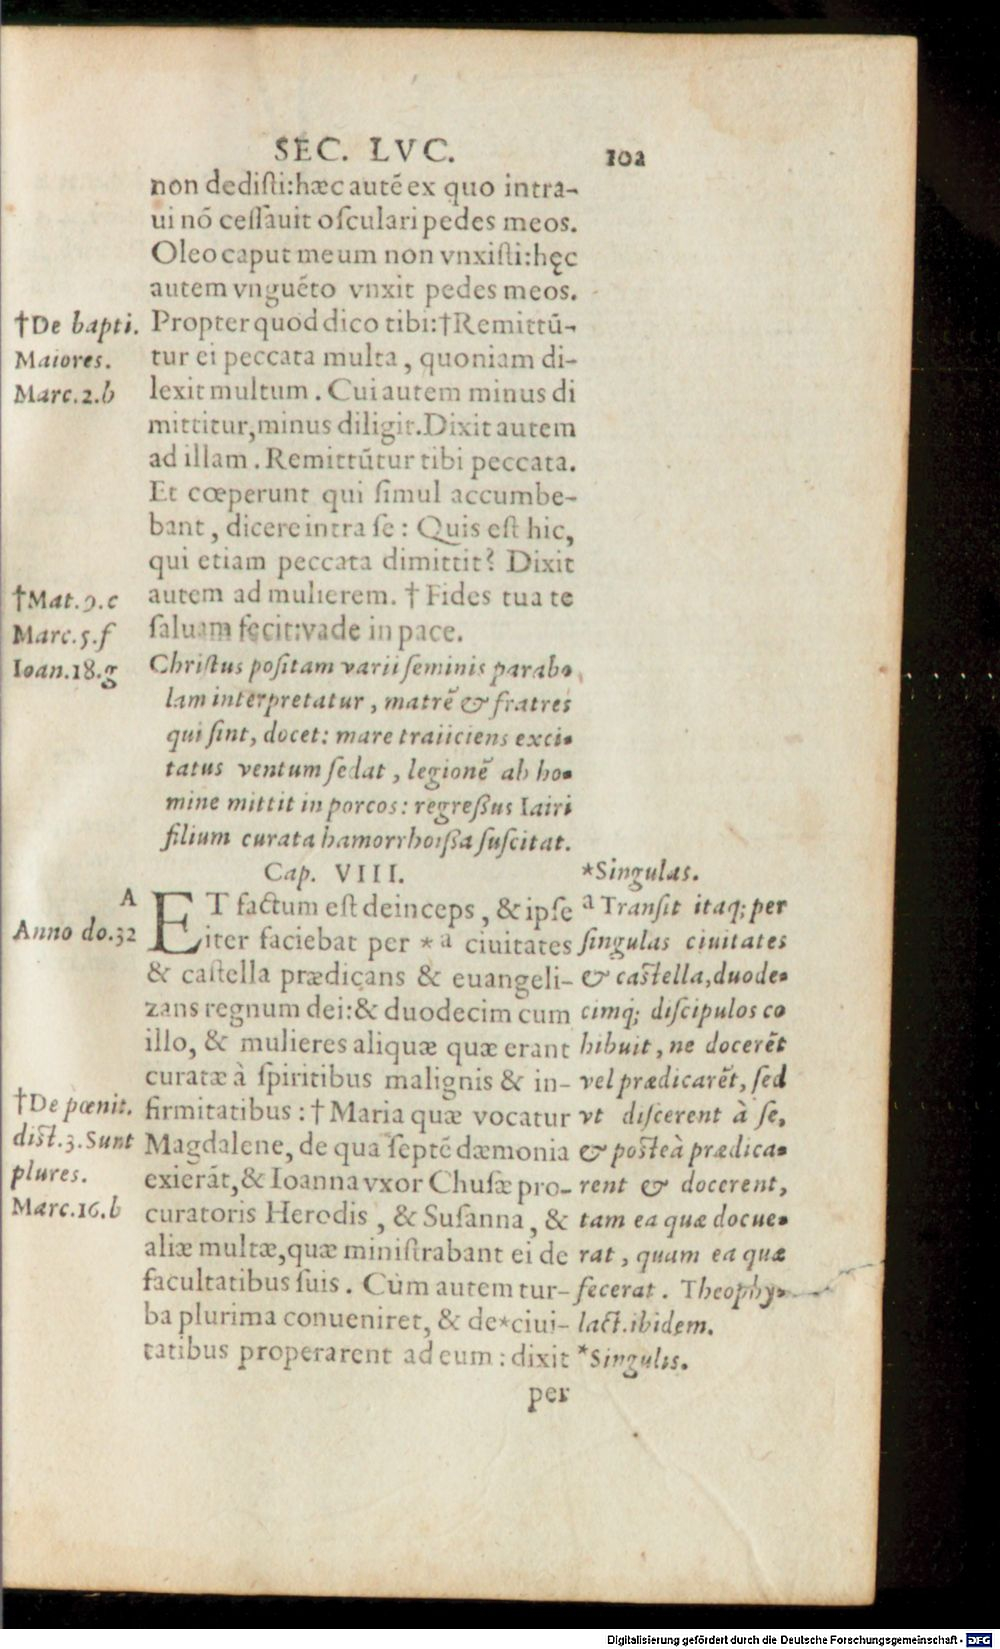 SEC. LVC.
102
non dedisti:hæc autē ex quo intra-
ui nō cessauit osculari pedes meos.
Oleo caput meum non vnxisti:hęc
autem vnguēto vnxit pedes meos.
Propter quod dico tibi:†Remittū-
tur ei peccata multa, quoniam di-
lexit multum. Cui autem minus di
mittitur,minus diligit.Dixit autem
ad illam. Remittūtur tibi peccata.
Et cœperunt qui simul accumbe-
bant, dicere intra se: Quis est hic,
qui etiam peccata dimittit? Dixit
autem ad mulierem. † Fides tua te
saluam fecit:vade in pace.
†De bapti.
Maiores.
Marc.2.b
†Mat.9.c
Marc.5.f
Ioan.18.g
Christus positam varii seminis parabo-
lam interpretatur, matrē & fratres
qui sint, docet: mare traiiciens exci-
tatus ventum sedat, legionē ab ho-
mine mittit in porcos: regressus Iairi
filium curata hamorrhoissa suscitat.
Cap. VIII.
A
Anno do.32
ET factum est deinceps, & ipse
iter faciebat per *ᵃ ciuitates
& castella prædicans & euangeli-
zans regnum dei:& duodecim cum
illo, & mulieres aliquæ quæ erant
curatæ à spiritibus malignis & in-
firmitatibus: † Maria quæ vocatur
Magdalene, de qua septē dæmonia
exierāt,& Ioanna vxor Chusæ pro-
curatoris Herodis, & Susanna, &
aliæ multæ,quæ ministrabant ei de
facultatibus suis. Cùm autem tur-
ba plurima conueniret, & de*ciui-
tatibus properarent ad eum: dixit
per
†De pœnit.
dist.3.Sunt
plures.
Marc.16.b
*Singulas.
ᵃ Transit itaq; per
singulas ciuitates
& castella,duode-
cimq; discipulos co
hibuit, ne docerēt
vel prædicarēt, sed
vt discerent à se,
& posteà prædica-
rent & docerent,
tam ea quæ docue-
rat, quam ea quæ
fecerat. Theophy-
lact.ibidem.
*Singulis.
Digitalisierung gefördert durch die Deutsche Forschungsgemeinschaft - DFG